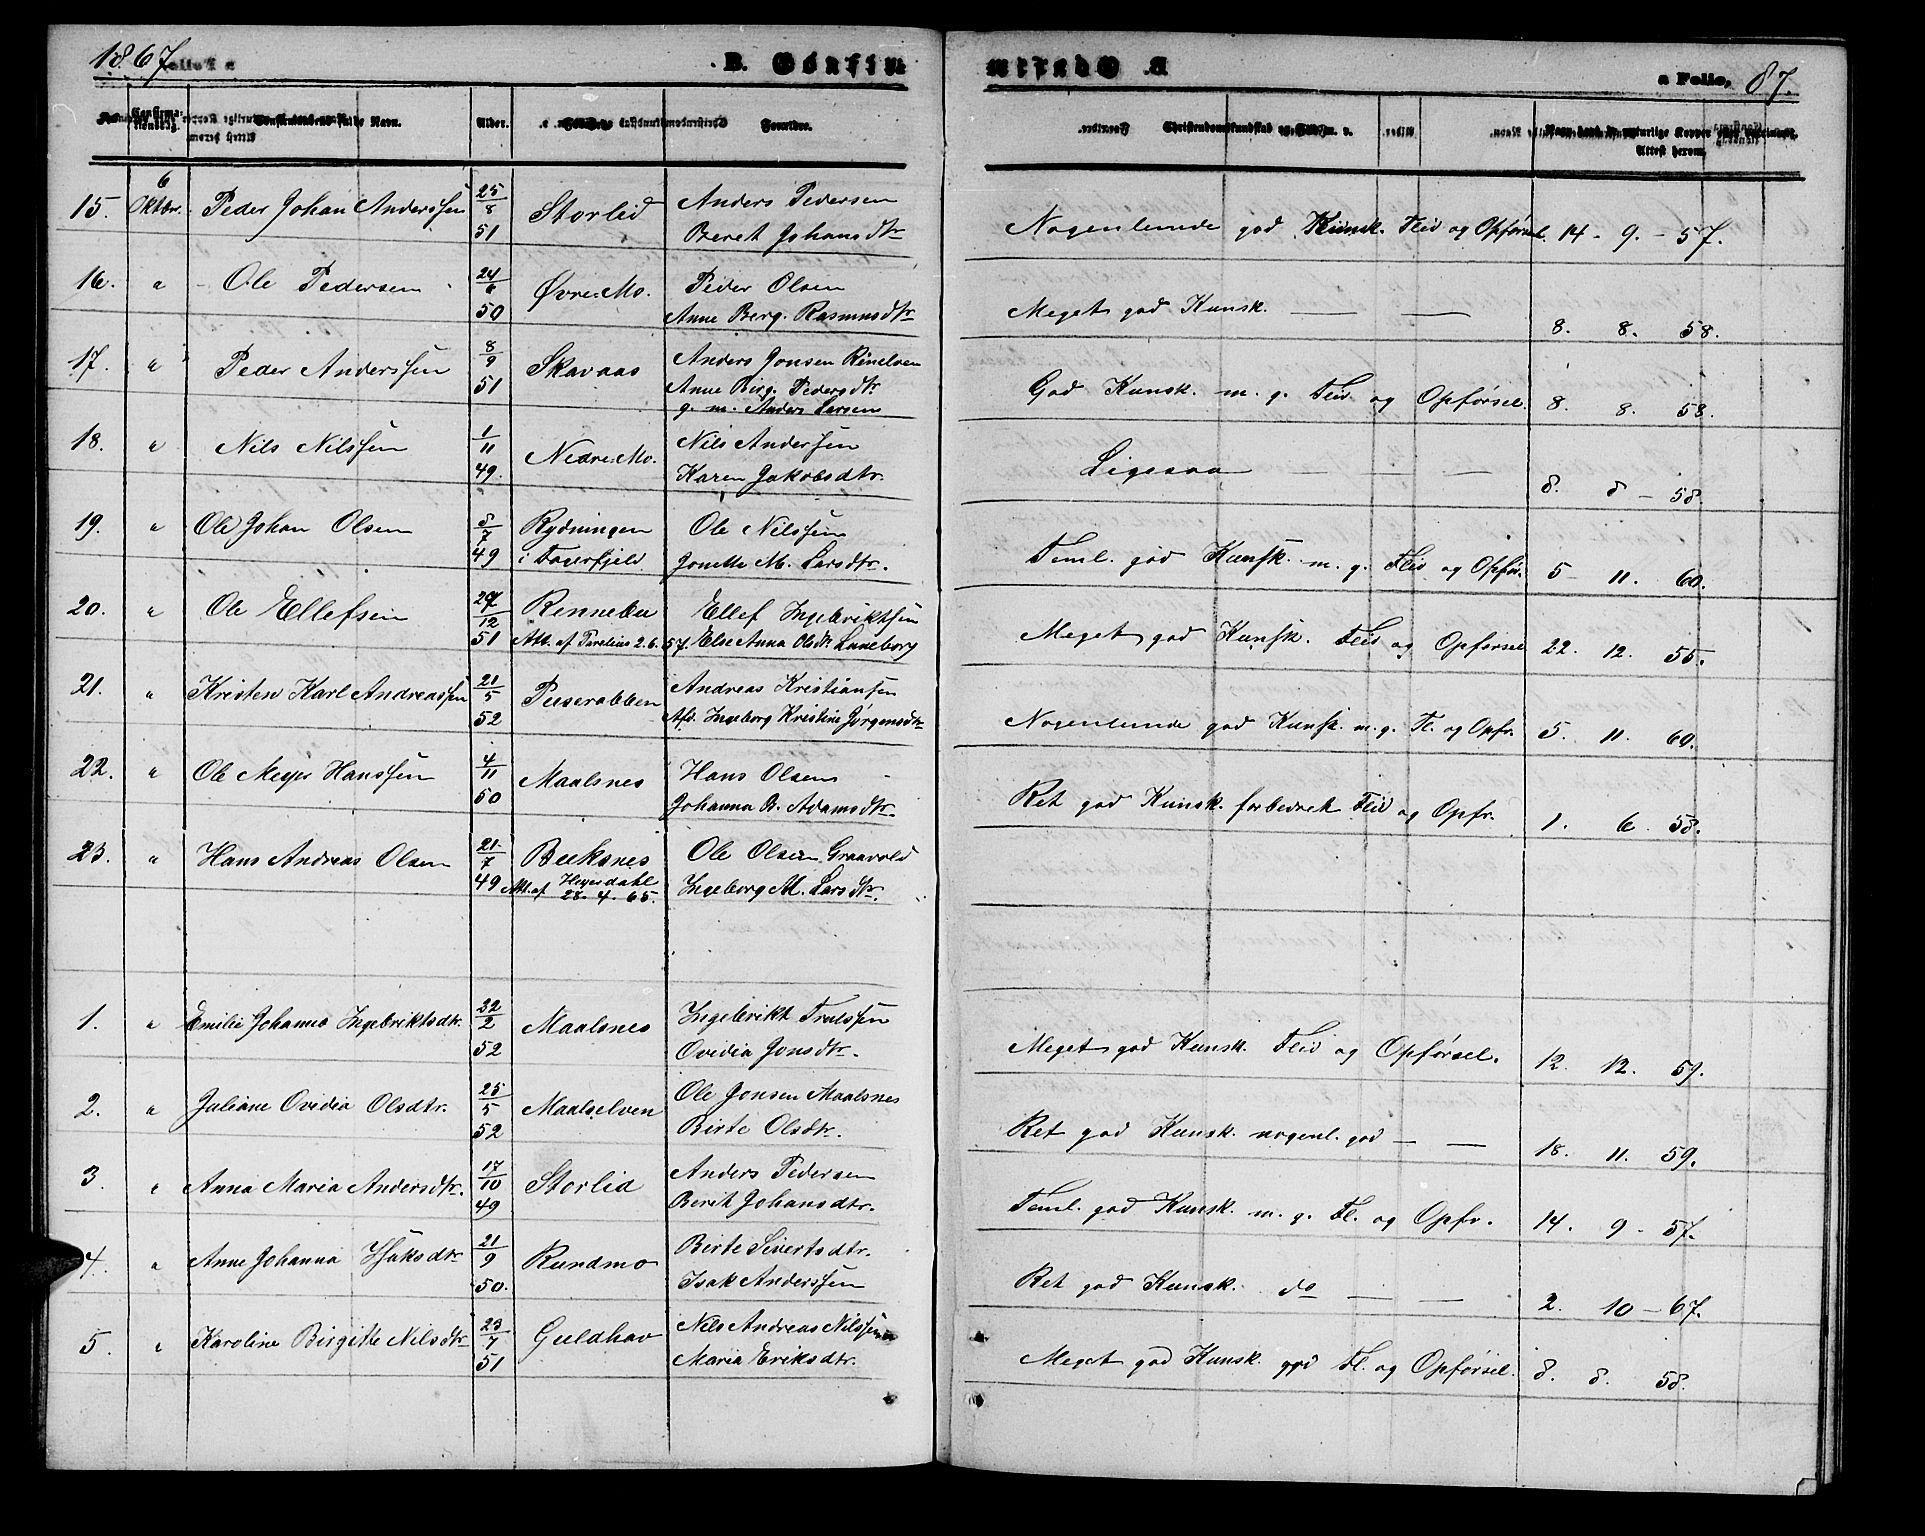 1867
B. Confirm
a Folio, 87.
Confirma-
tionsdag.
Confirmandens fulde Navn.
Alder.
Forældre.
Christendomskundskab og Flid m. v.
Attest herom.
15. 6 Oktbr. Peder Johan Anderssen 25/8 51 Storlid Anders Pedersen
Beret Johansdtr Nogenlunde god Kunsk. Flid og Opførsel. 14 - 9. - 57.
16. " Ole Pedersen 24/6 50 Øvre Mo. Peder Olsen
Anne Berg. Rasmusdtr Meget god Kunsk. — — 8. 8. 58.
17. " Peder Anderssen 8/9 51 Skavaas Anders Jonsen
Anne Birg. Pedersdtr.
g. m. Anders Larsen God Kunsk. m. g. Flid og Opførsel. 8. 8. 58.
18. " Nils Nilssen 1/11 49. Nedre Mo. Nils Anderssen
Karen Jakobsdtr. Ligesaa — — — 8. 8 - 58.
19. " Ole Johan Olsen 8/7 49 Rydningen Ole Nilssen
i Tagerfjeld Jonette M. Larsdtr. Teml. god Kunsk. m. g. Flid og Opfør. 5 - 11. 60.
20. " Ole Ellefsen 27/12 51 Rennebu Ellef Ingebriktssen
Att. af Parelius 2. 6. 57. Else Anna Olsdtr. Luneborg Meget god Kunsk. Flid og Opførsel 22. 12. 55.
21. " Kristen Karl Andreassen 21/5 52 Puserabben Andreas Kristiansen
Afd. Ingeborg Kristine Jørgensdtr Nogenlunde god Kunsk. m. g. Fl. og Opfr. 5. 11. 60.
22. " Ole Meyer Hanssen 4/11 50 Maalsnes Hans Olsen
Johanna B. Adamsdtr. Ret god Kunsk. forbedret Flid og Opfr. 1. 6. 58.
23. " Hans Andreas Olsen 21/7 49 Buksnes Ole Olsen Graavold
Att. af Heyerdahl
28. 4. 65. Ingeborg M. Larsdtr.
1. " Emilie Johanna Ingebriktsdtr. 22/2 52 Maalsnes Ingebrikt Trulssen
Ovidia Jonsdtr. Meget god Kunsk. Flid og Opførsel. 12. 12. 59.
2. " Juliane Ovidia Olsdtr. 25/5 52 Maalselven Ole Jonsen Maalsnes
Birte Olsdtr. Ret god Kunsk. nogenl. god — — 18. 11. 59.
3. " Anna Maria Andersdtr. 17/10 49 Storlid Anders Pedersen
Berit Johansdtr. Teml. god Kunsk. m. g. Fl. og Opfr. 14. 9 - 57.
4. " Anne Johanna Isaksdtr 21/9 50. Rundmo Birte Sivertsdtr.
Isak Anderssen Ret god Kunsk. do — — 2. 10 - 67.
5. " Karoline Birgitte Nilsdtr 23/7 51 Guldhav Nils Andreas Nilssen
Maria Eriksdtr. Meget god Kunsk. god Fl. og Opførsel. 8. 8. 58.